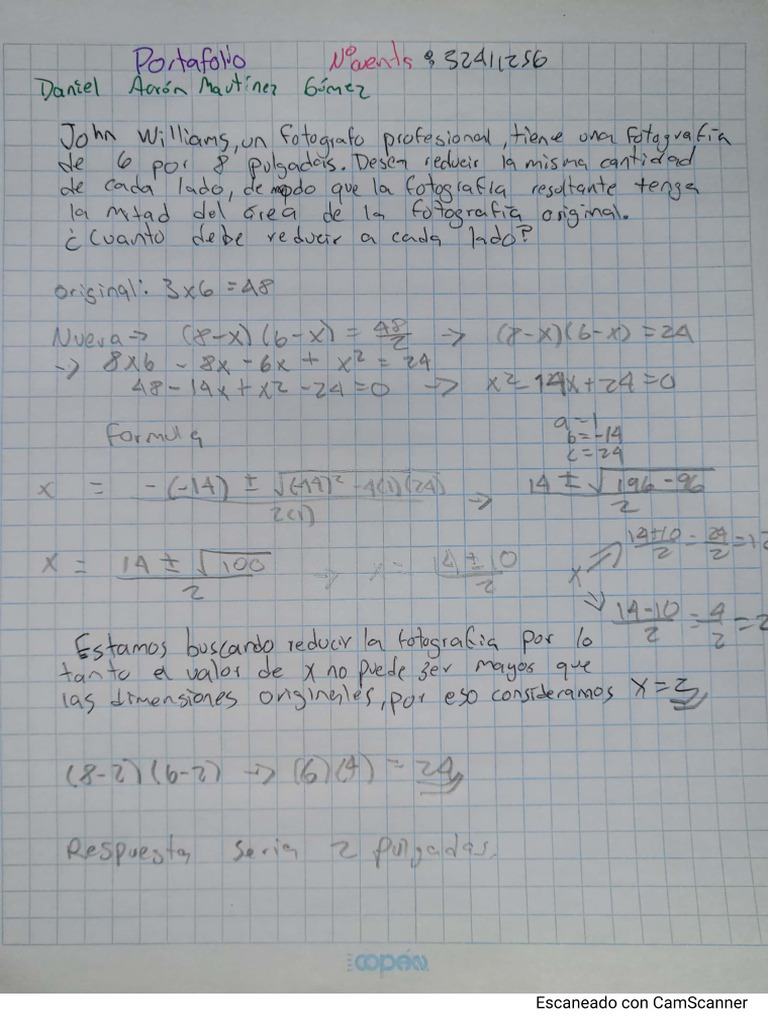 Portafolio Nº cuenta : 32411256
Daniel Aarón Martínez Gómez
John Williams, un fotografo profesional, tiene una fotografía
de 6 por 8 pulgadas. Desea reducir la misma cantidad
de cada lado, de modo que la fotografía resultante tenga
la mitad del área de la fotografía original.
¿Cuanto debe reducir a cada lado?
original: 3x6 = 48
Nueva → (8-x)(6-x) = 48/2 → (8-x)(6-x) = 24
→ 8x6 - 8x - 6x + x² = 24
48 - 14x + x² - 24 = 0 → x² - 14x + 24 = 0
Formula
a = 1
b = -14
c = 24
x = -(-14) ± √(-14)² - 4(1)(24) / 2(1) → 14 ± √196 - 96 / 2
x = 14 ± √100 / 2 → x = 14 ± 10 / 2
x ↗ 14+10/2 = 24/2 = 12
↘ 14-10/2 = 4/2 = 2
Estamos buscando reducir la fotografia por lo
tanto el valor de x no puede ser mayos que
las dimensiones originales, por eso consideramos x = 2
(8-2)(6-2) → (6)(4) = 24
Respuesta seria 2 pulgadas.
copán
Escaneado con CamScanner